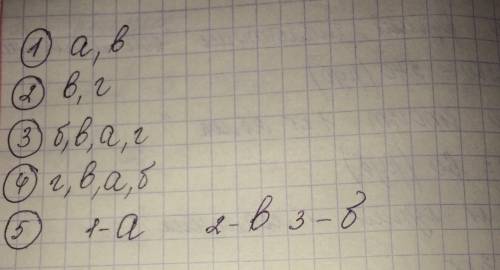 1 а, в
2 в, г
3 б, в, а, г
4 г, в, а, б
5 1-а 2-в 3-б